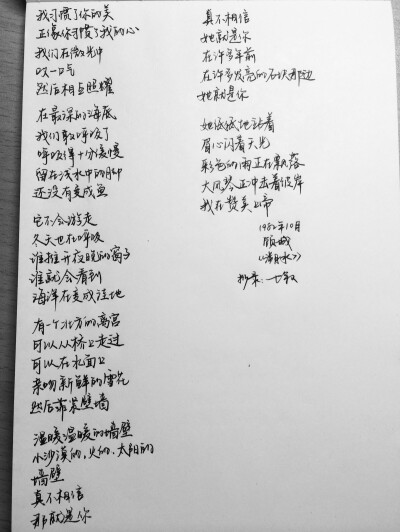 我习惯了你的美
正像你习惯了我的心
我们在微光中
叹一口气
然后相互照耀
在最深的海底
我们敢呼吸了
呼吸得十分缓慢
留在浅水中的脚
还没有变成鱼
它不会游走
冬天也在呼吸
谁推开夜晚的窗子
谁就会看到
海洋在变成洼地
有一个北方的离宫
可以从桥上走过
可以在水面上
亲吻新鲜的雪花
然后靠紧壁墙
温暖温暖的墙壁
小沙漠的，火的，太阳的
墙壁
真不相信
那就是你
真不相信
她就是你
在许多年前
在许多发亮的石块那边
她就是你
她低低地站着
眉心闪着天光
彩色的雨正在飘落
大风琴正冲击着彼岸
我在赞美上帝
1982年10月
顾城
抄录：